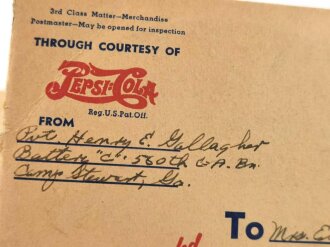 3rd Class Matter—Merchandise
Postmaster—May be opened for inspection
THROUGH COURTESY OF
PEPSI-COLA
Reg. U.S. Pat. Off.
FROM
Pvt Henry E. Gallagher
Battery "C" 560th C.A. Bn.
Camp Stewart, Ga.
To Mrs. E